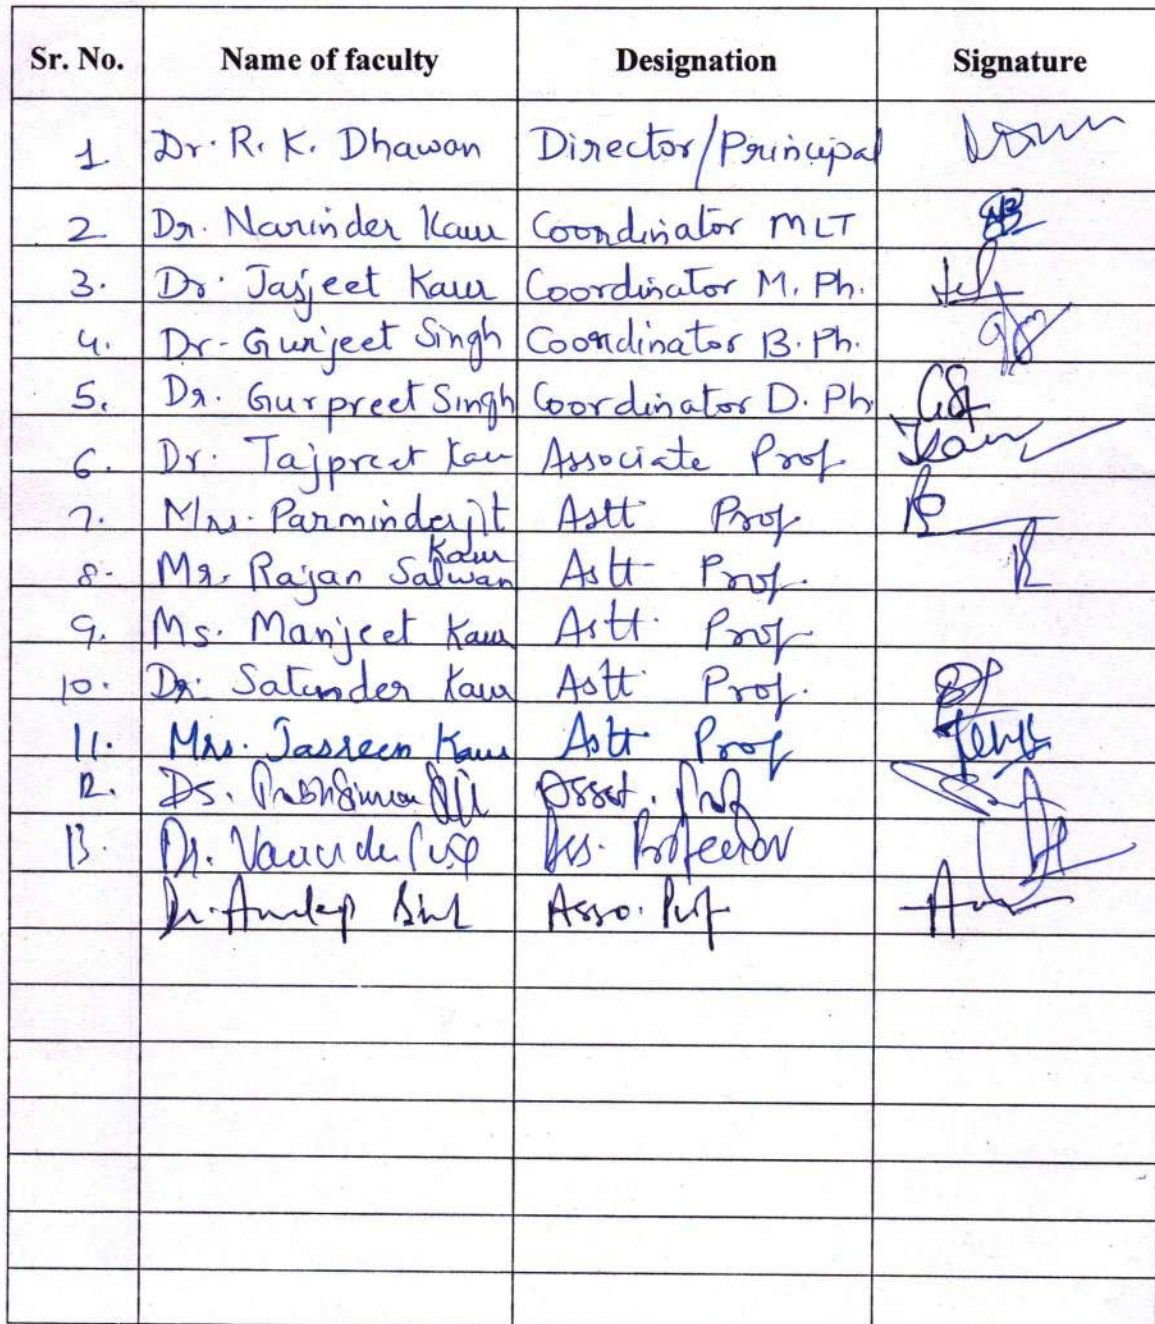 Sr. No. Name of faculty Designation Signature
1 Dr. R. K. Dhawan Director/Principal
2 Dr. Narinder Kaur Coordinator MLT
3. Dr. Jasjeet Kaur Coordinator M. Ph.
4. Dr. Gurjeet Singh Coordinator B. Ph.
5. Dr. Gurpreet Singh Coordinator D. Ph.
6. Dr. Tajpreet Kaur Associate Prof.
7. Mrs. Parminderjit Kaur Astt Prof.
8. Mr. Rajan Salwan Astt Prof.
9. Ms. Manjeet Kaur Astt. Prof
10. Dr. Satinder Kaur Astt Prof.
11. Mrs. Jasreen Kaur Astt Prof
12. Prof
13. Dr. Professor
Dr. Asso. Prof